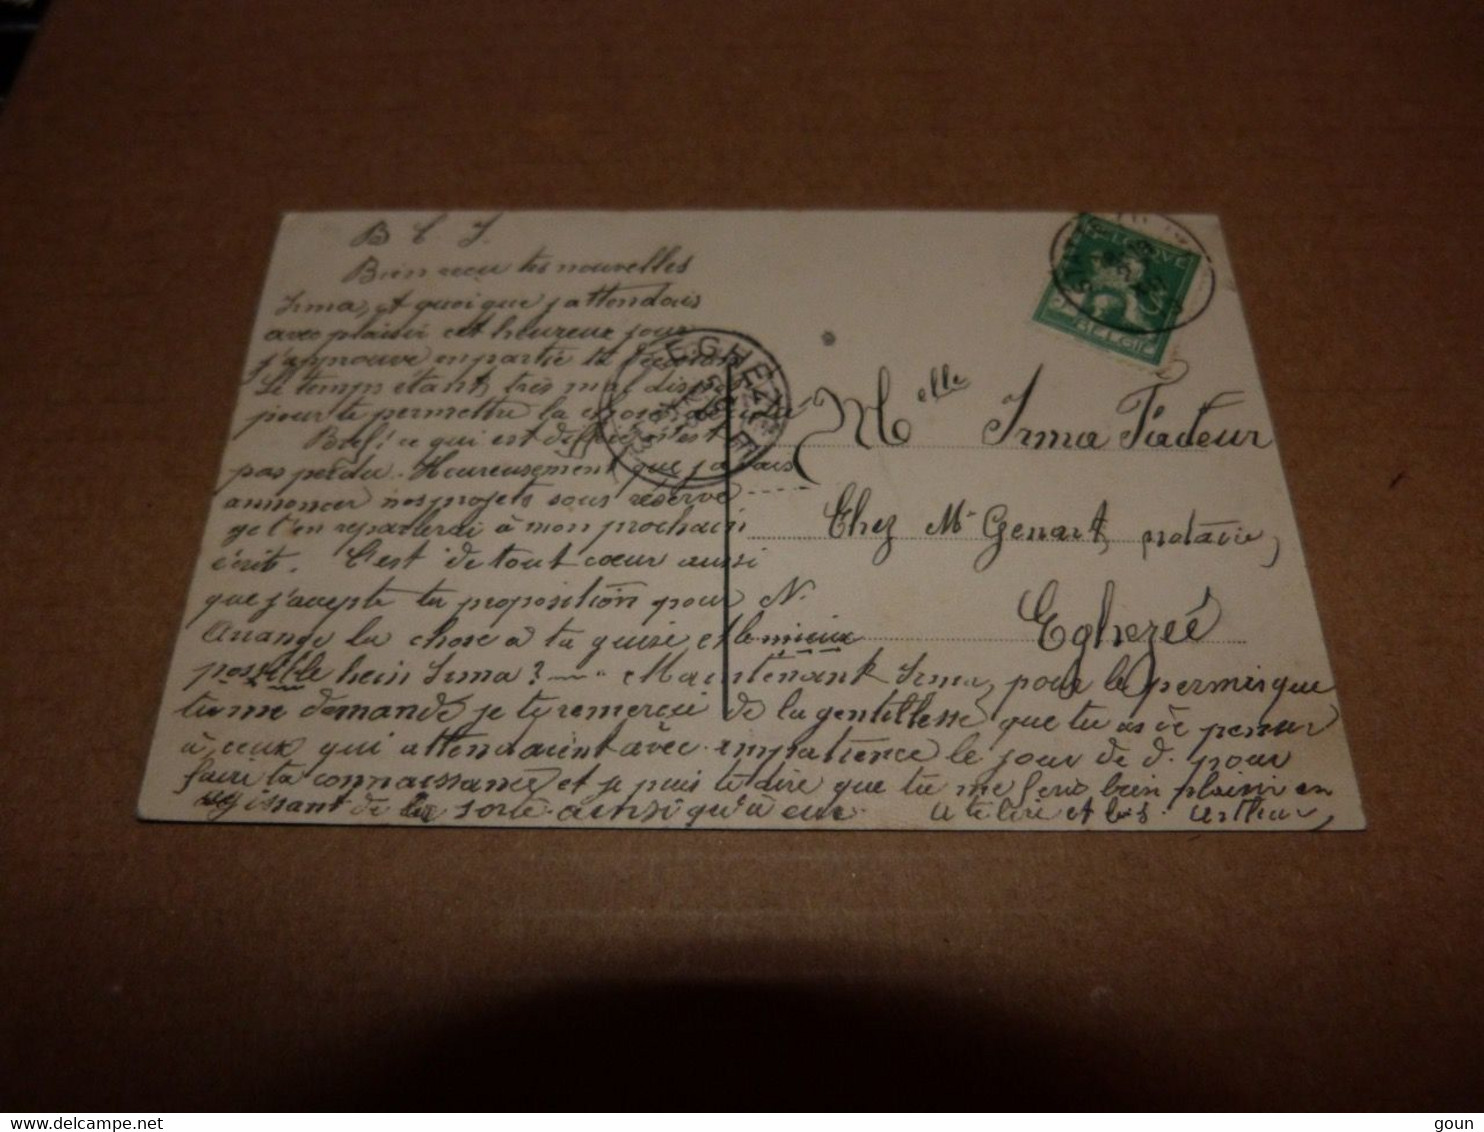 B C I.
Bien reçu tes nouvelles
Irma, et quoique j'attendais
avec plaisir cet heureux jour
j'approuve en partie ta décision
Le temps étant très mal disposé
pour te permettre la chose
Bref! ce qui est différé n'est
pas perdu. Heureusement que j'avais
annoncer nos projets sous réserve
je t'en reparlerai à mon prochain
écrit. C'est de tout cœur aussi
que j'accepte ta proposition pour N.
Arrange la chose à ta guise et le mieux
possible hein Irma? Maintenant Irma, pour le permis que
tu me demande je te remercie de la gentillesse que tu as de penser
à ceux qui attendaient avec impatience le jour de d. pour
faire ta connaissance et je puis te dire que tu me feras bien plaisir en
agissant de la sorte ainsi qu'à eux. A te lire et b.s. Arthur
EGHEZÉE
BELGIQUE
BELGIË
Melle Irma Fadeur
Chez Mr Genart, notaire,
Eghezeé
goun